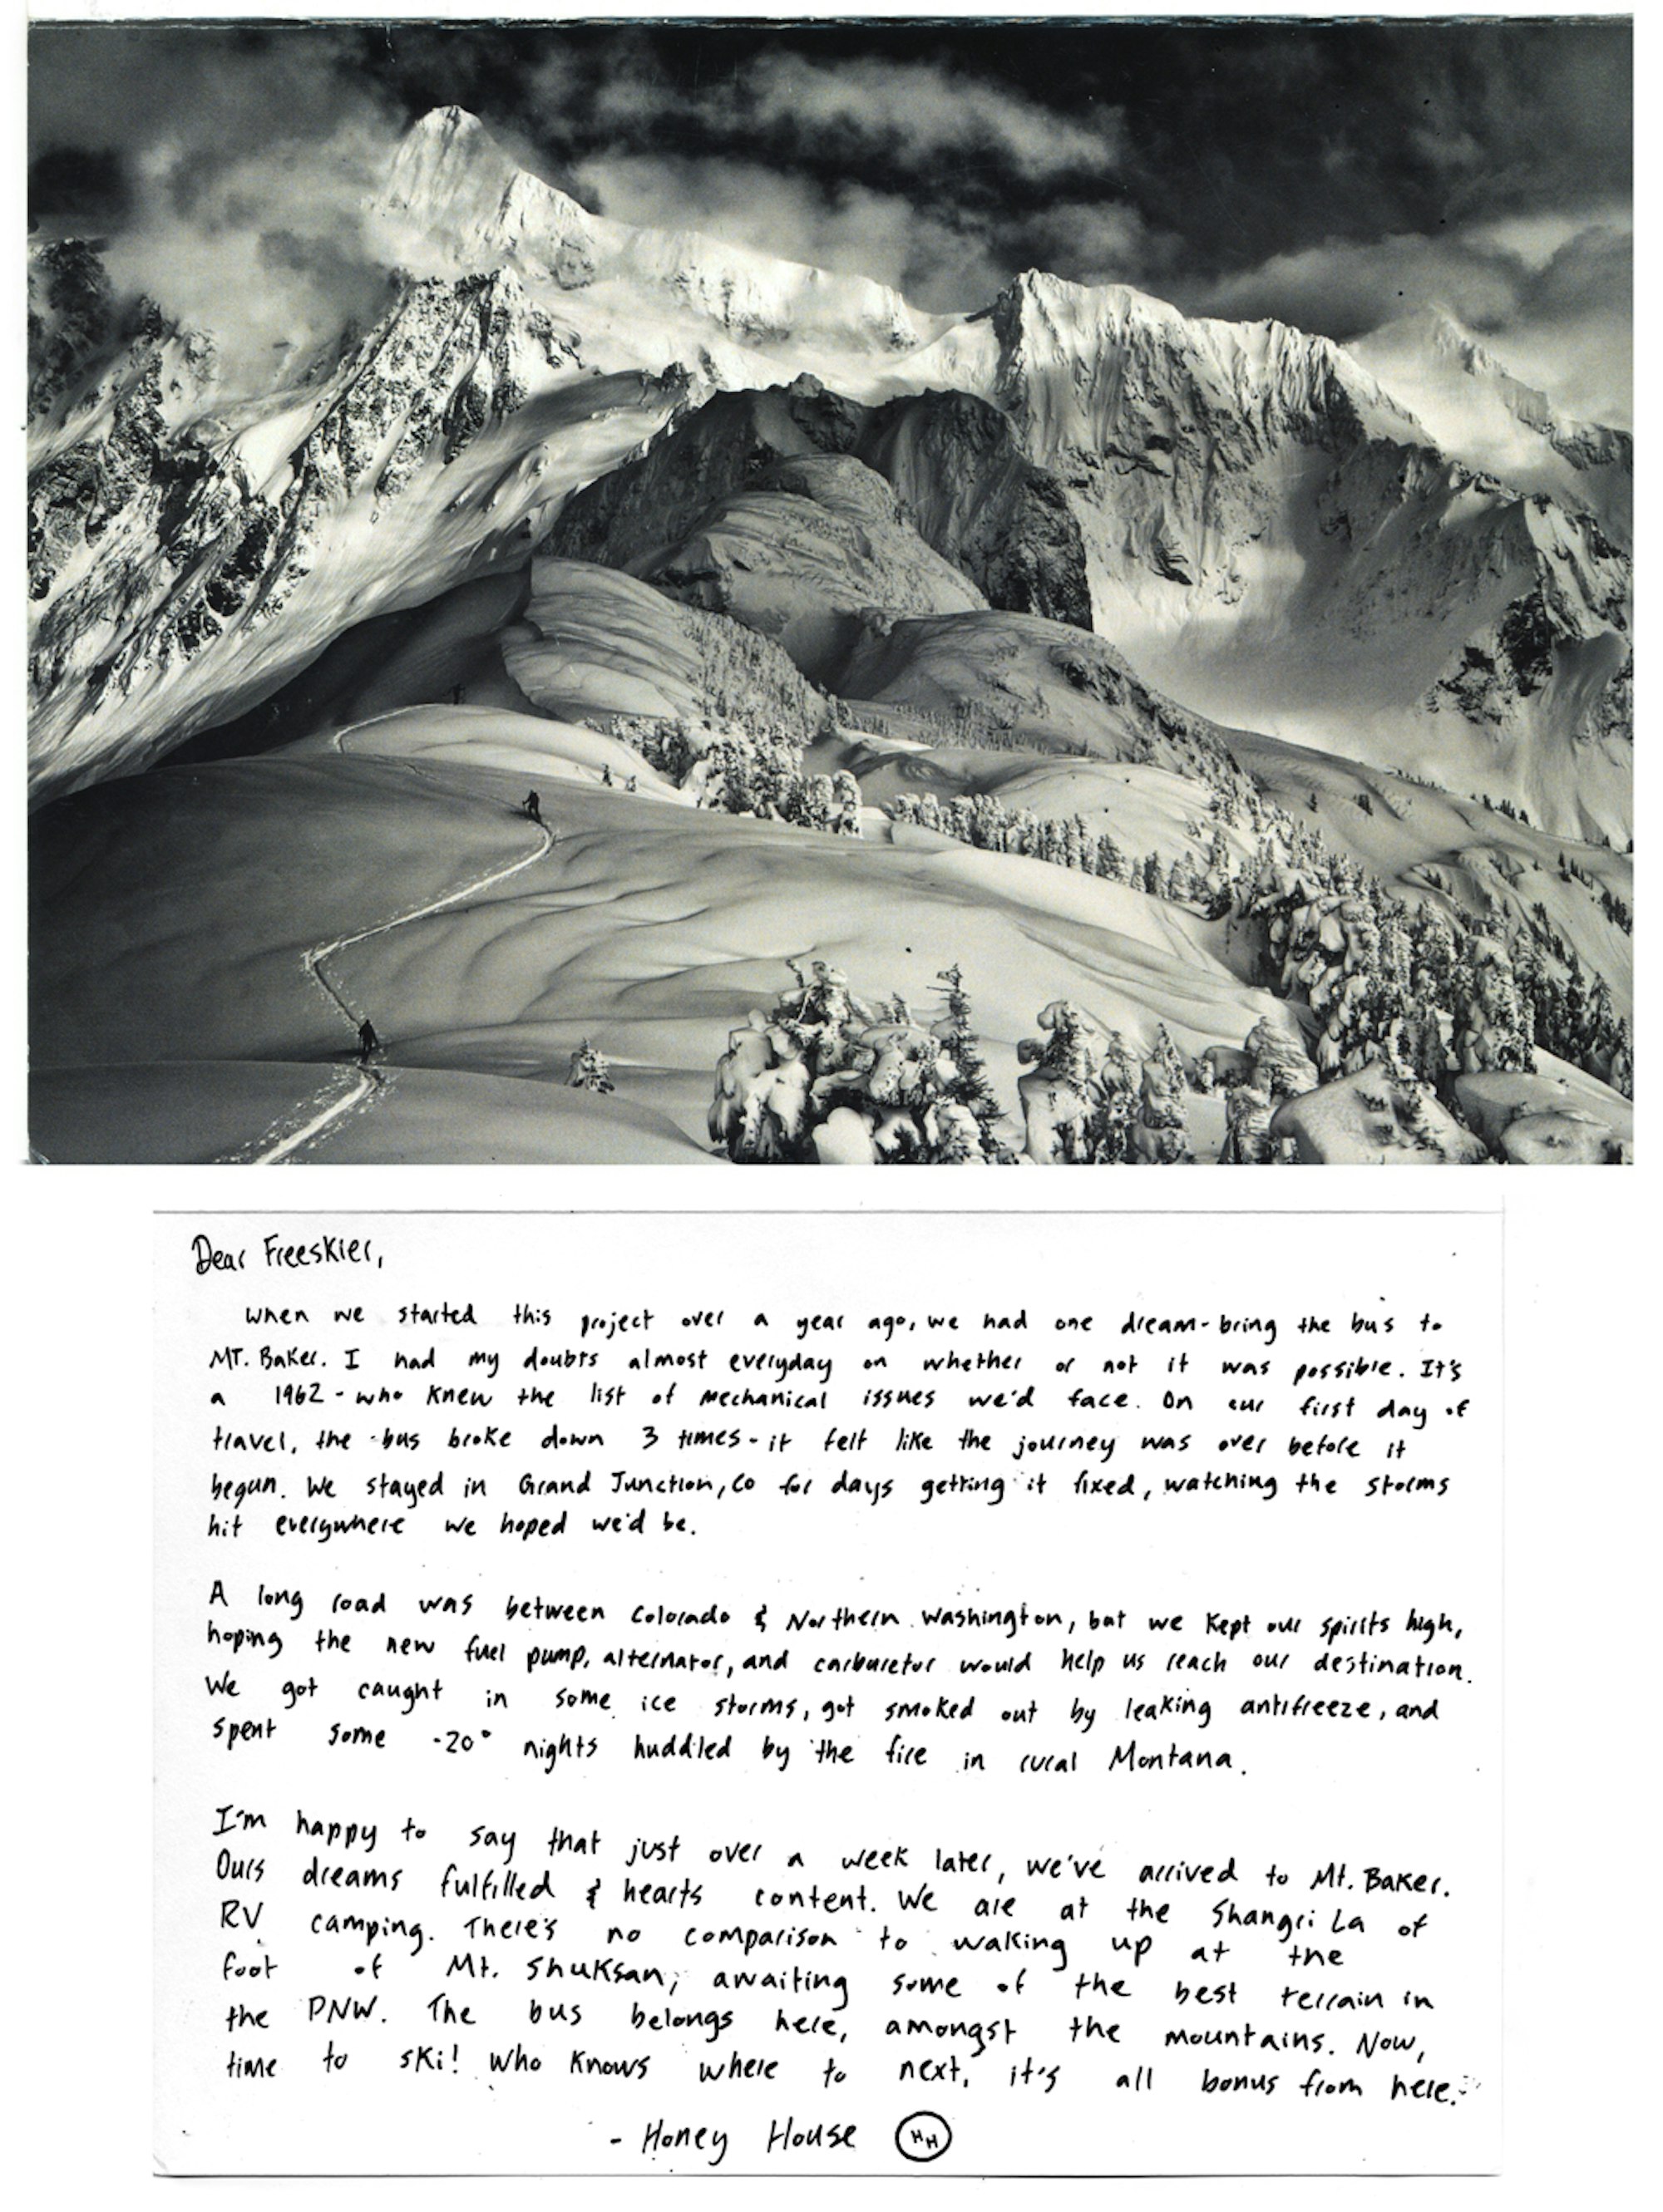 Dear Freeskier,
When we started this project over a year ago, we had one dream - bring the bus to
MT. Baker. I had my doubts almost everyday on whether or not it was possible. It's
a 1962 - who knew the list of mechanical issues we'd face. On our first day of
travel, the bus broke down 3 times - it felt like the journey was over before it
begun. We stayed in Grand Junction, Co for days getting it fixed, watching the storms
hit everywhere we hoped we'd be.
A long road was between Colorado & Northern Washington, but we kept our spirits high,
hoping the new fuel pump, alternator, and carburetor would help us reach our destination.
We got caught in some ice storms, got smoked out by leaking antifreeze, and
spent some -20° nights huddled by the fire in rural Montana.
I'm happy to say that just over a week later, we've arrived to Mt. Baker.
Ours dreams fulfilled & hearts content. We are at the Shangri La of
RV camping. There's no comparison to waking up at the
foot of Mt. Shuksan, awaiting some of the best terrain in
the PNW. The bus belongs here, amongst the mountains. Now,
time to ski! Who knows where to next, it's all bonus from here.
- Honey House HH